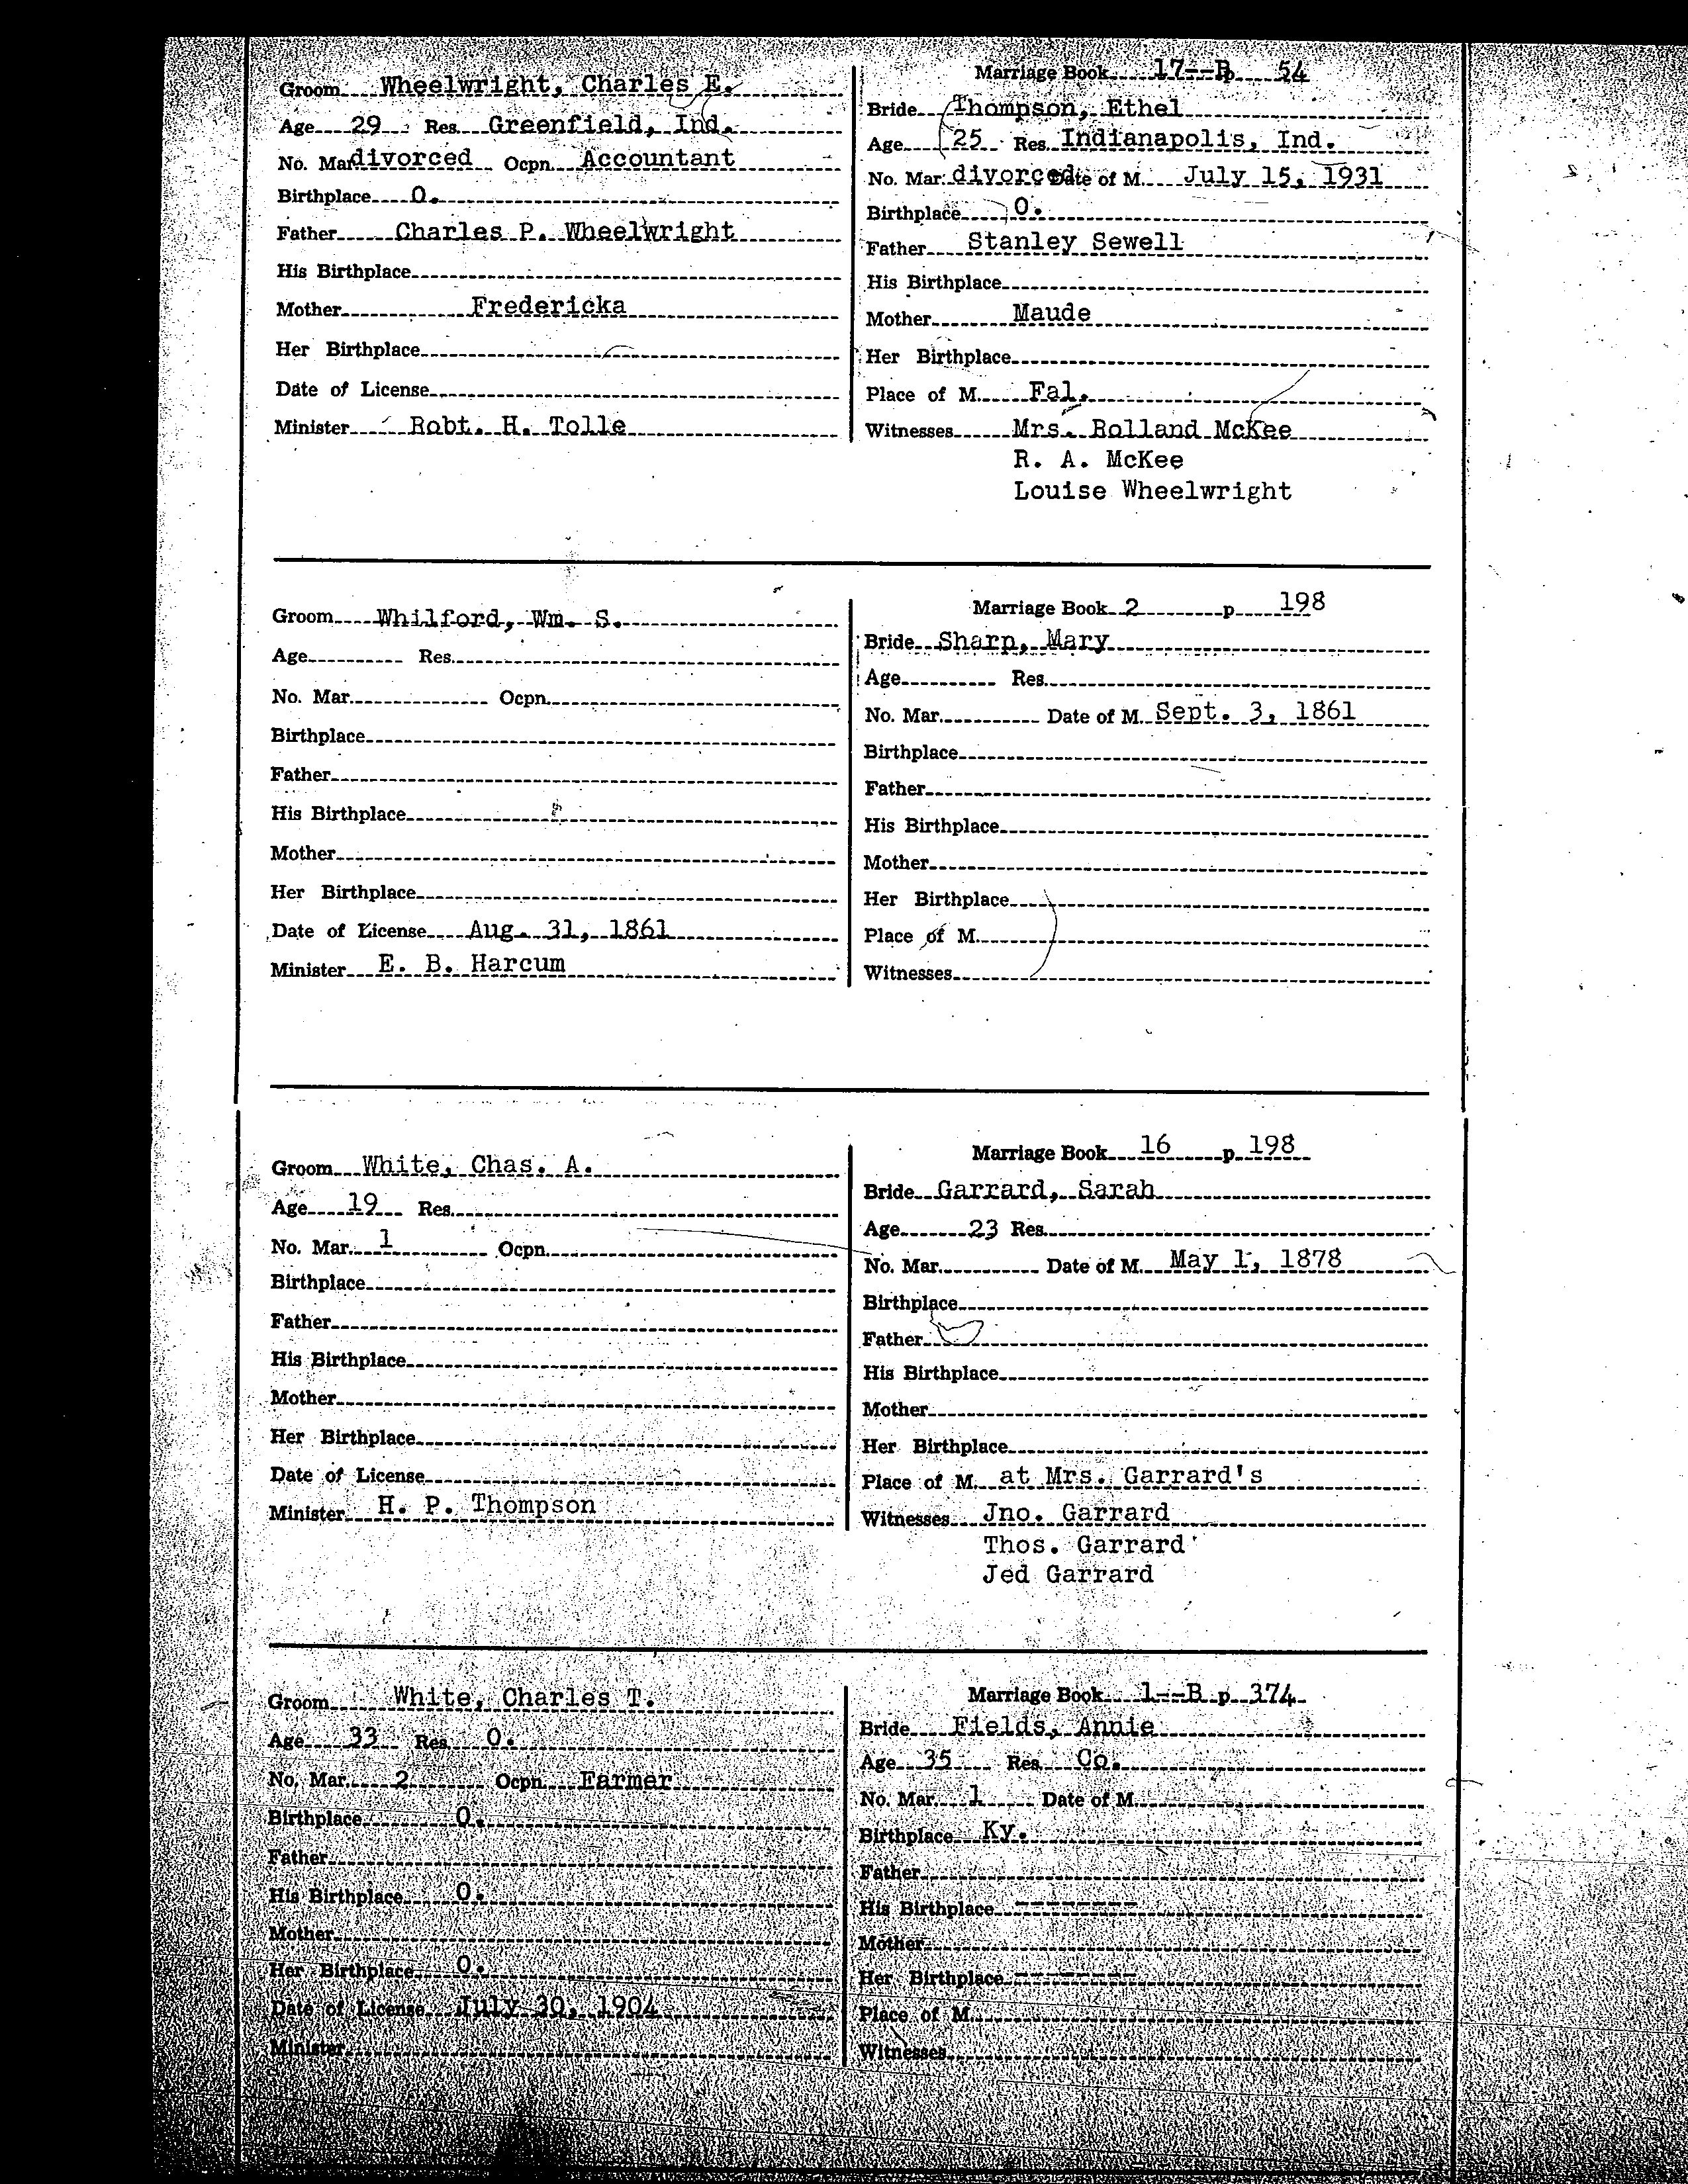 Groom Wheelwright, Charles E.
Age 29 Res. Greenfield, Ind.
No. Mar. divorced Ocpn. Accountant
Birthplace O.
Father Charles P. Wheelwright
His Birthplace
Mother Fredericka
Her Birthplace
Date of License
Minister Robt. H. Tolle
Marriage Book 17--B 54
Bride Thompson, Ethel
Age 25 Res. Indianapolis, Ind.
No. Mar. divorced Date of M. July 15, 1931
Birthplace O.
Father Stanley Sewell
His Birthplace
Mother Maude
Her Birthplace
Place of M. Fal.
Witnesses Mrs. Rolland McKee
R. A. McKee
Louise Wheelwright
Groom Whilford, Wm. S.
Age Res.
No. Mar. Ocpn.
Birthplace
Father
His Birthplace
Mother
Her Birthplace
Date of License Aug. 31, 1861
Minister E. B. Harcum
Marriage Book 2 p 198
Bride Sharp, Mary
Age Res.
No. Mar. Date of M. Sept. 3, 1861
Birthplace
Father
His Birthplace
Mother
Her Birthplace
Place of M.
Witnesses
Groom White, Chas. A.
Age 19 Res.
No. Mar. 1 Ocpn.
Birthplace
Father
His Birthplace
Mother
Her Birthplace
Date of License
Minister H. P. Thompson
Marriage Book 16 p 198
Bride Garrard, Sarah
Age 23 Res.
No. Mar. Date of M. May 1, 1878
Birthplace
Father
His Birthplace
Mother
Her Birthplace
Place of M. at Mrs. Garrard's
Witnesses Jno. Garrard
Thos. Garrard
Jed Garrard
Groom White, Charles T.
Age 33 Res. O.
No. Mar. 2 Ocpn. Farmer
Birthplace O.
Father
His Birthplace O.
Mother
Her Birthplace O.
Date of License July 30, 1904
Minister
Marriage Book 1--B p 374
Bride Fields, Annie
Age 35 Res. Co.
No. Mar. 1 Date of M.
Birthplace Ky.
Father
His Birthplace --------
Mother
Her Birthplace --------
Place of M.
Witnesses